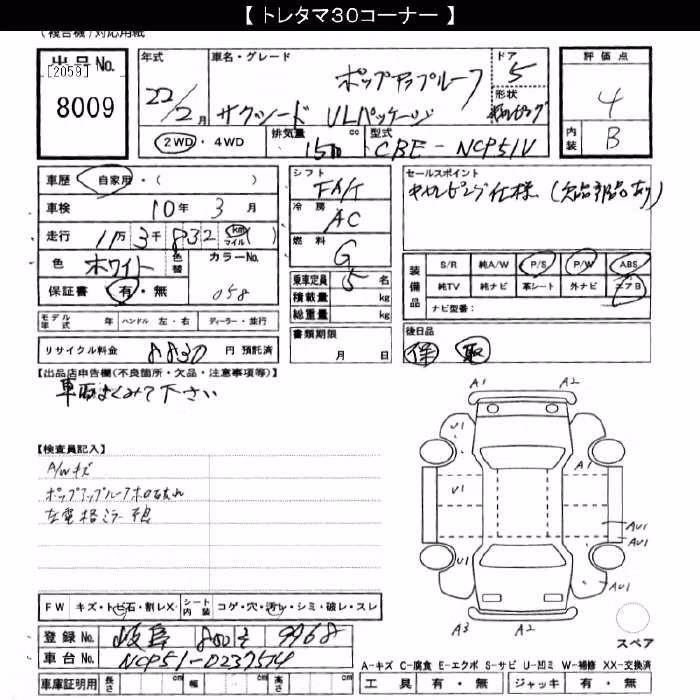 【 トレタマ３０コーナー 】
(複合機)対応用紙
出品No.
[2059]
8009
年式
22/2月
車名・グレード
ポップアップルーフ
サクシード ULパッケージ
ドア
5
形状
評価点
4
内装
B
2WD・4WD
排気量
1500 cc
型式
CBE - NCP51V
車歴 自家用・( )
車検 10年 3月
走行 11万 3千 832 km マイル ( )
色 ホワイト 色替 カラーNo. 058
保証書 有・無
モデル年式 年 ハンドル 左・右 ディーラー・並行
リサイクル料金 8830 円 預託済
シフト FA/T
冷房 AC
燃料 G
乗車定員 5 名
積載量 kg
総重量 kg
書類期限
月 日
セールスポイント
キャンピング仕様(欠品部品あり)
装備品
S/R 純A/W P/S P/W ABS
純TV 純ナビ 革シート 外ナビ エアB
ナビ型番:
後日品
保 取
【出品店申告欄(不良箇所・欠品・注意事項等)】
車両よくみて下さい
【検査員記入】
A/Wキズ
ポップアップルーフホロ破れ
左電格ミラー不良
A1 A2
U1
A1
U1
AU1
AU1
AU1
A3 A2
スペア
FW キズ・トビ石・割レX シート内装 コゲ・穴・汚レ・シミ・破レ・スレ
登録No. 岐阜 800 そ 9968
車台No. NCP51-0237514
車庫証明用 長さ cm 幅 cm 高さ cm
A-キズ C-腐食 E-エクボ S-サビ U-凹ミ W-補修 XX-交換済
工具 有・無 ジャッキ 有・無